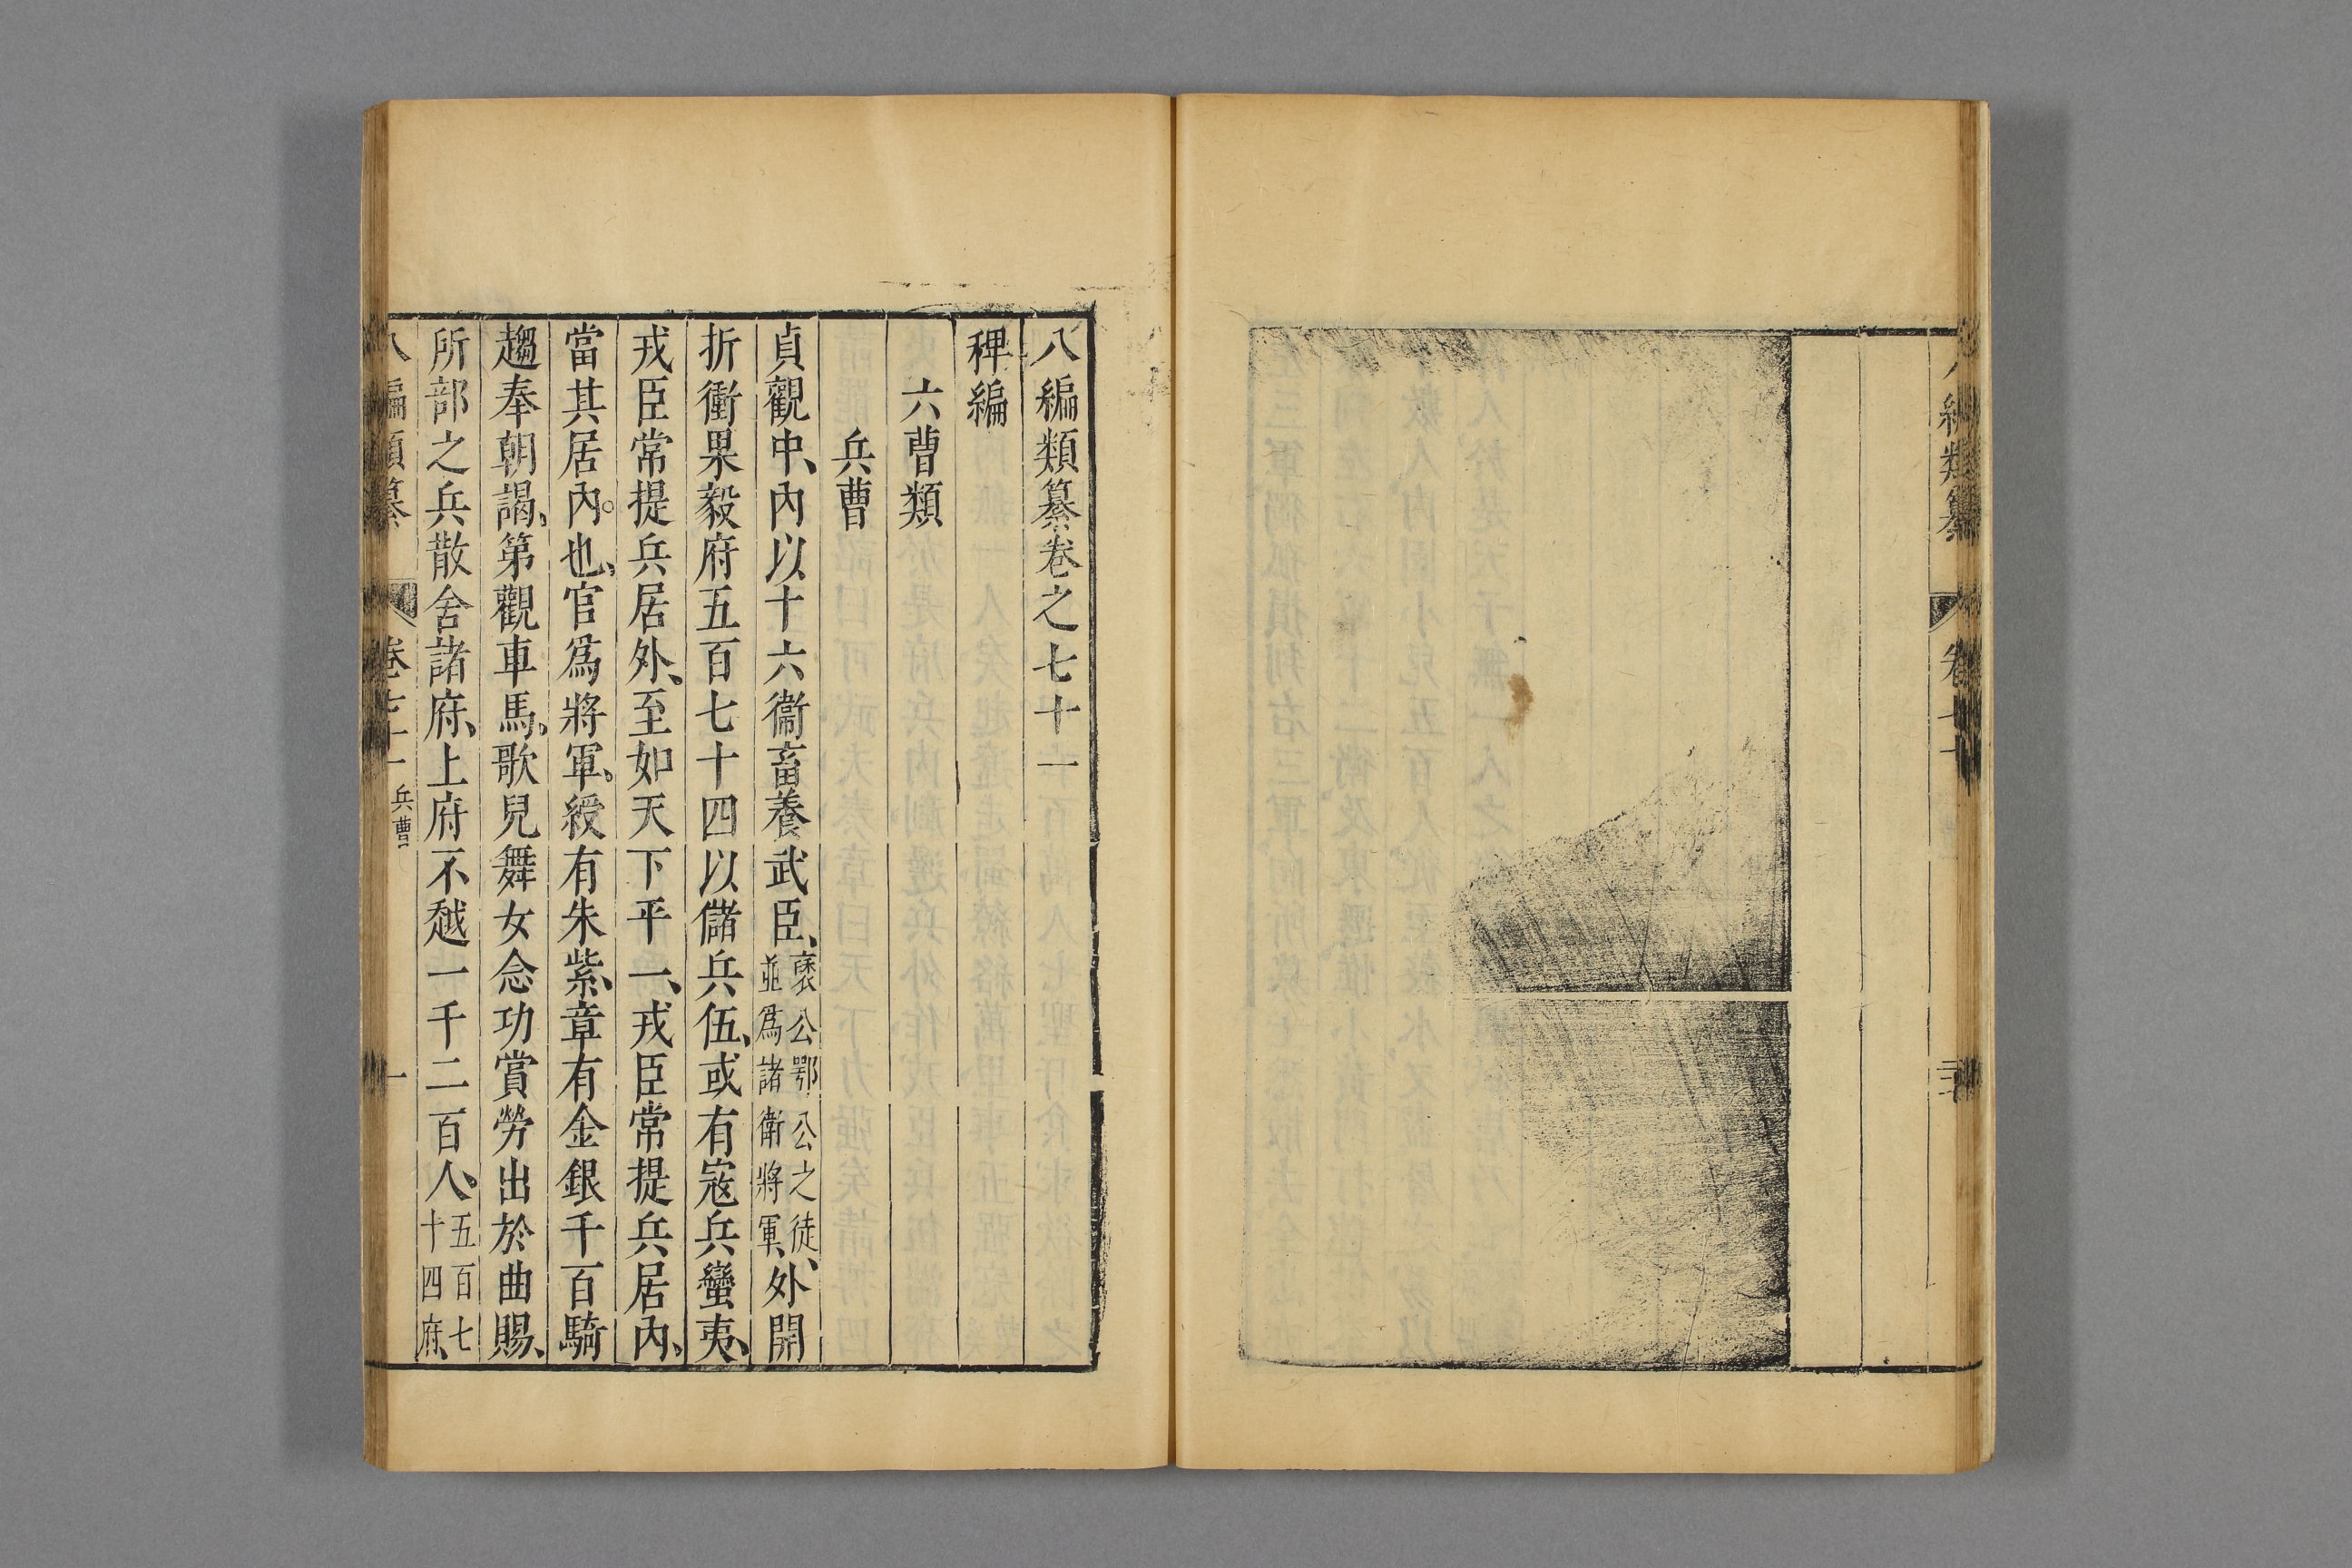 八編類纂
八編類纂卷之七十一
稗編
六曹類
兵曹
貞觀中、內以十六衞畜養武臣、褒公鄂公之徒、並爲諸衛將軍、外開
折衝果毅府五百七十四以儲兵伍、或有寇兵蠻夷、
戎臣常提兵居外、至如天下平一、戎臣常提兵居內、
當其居內。也、官爲將軍。綬有朱紫、章有金銀千百騎
趨奉朝謁、第觀車馬。歌兒舞女念功賞勞出於曲賜、
所部之兵散舍諸府、上府不越一千二百人、五百七十四府、
八編類纂 卷七十一 兵曹 一